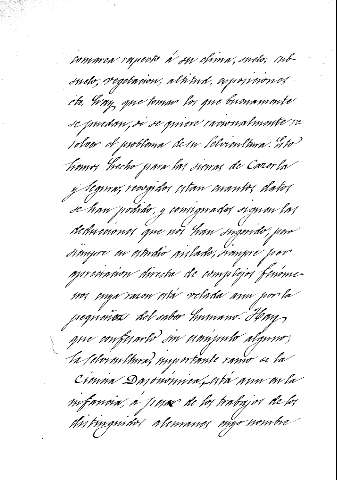 comarca respecto á su clima, suelo, sub-
suelo, vegetacion, altitud, exposiciones
etc. Hay que tomar los que buenamente
se puedan, si se quiere racionalmente re-
solver el problema de su Selvicultura. Esto
hemos hecho para las sierras de Cazorla
y Segura; recogidos estan cuantos datos
se han podido, y consignados siguen las
deducciones que nos han sugerido, por
siempre un estudio aislado, siempre por
apreciacion directa de complejos fenóme-
nos cuya razon está velada aun por la
pequeñez del saber humano. Hay
que confesarlo sin escrúpulo alguno;
la Selvicultura, importante ramo de la
Ciencia Dasonómica, está aun en la
infancia, á pesar de los trabajos de los
distinguidos alemanes cuyo nombre